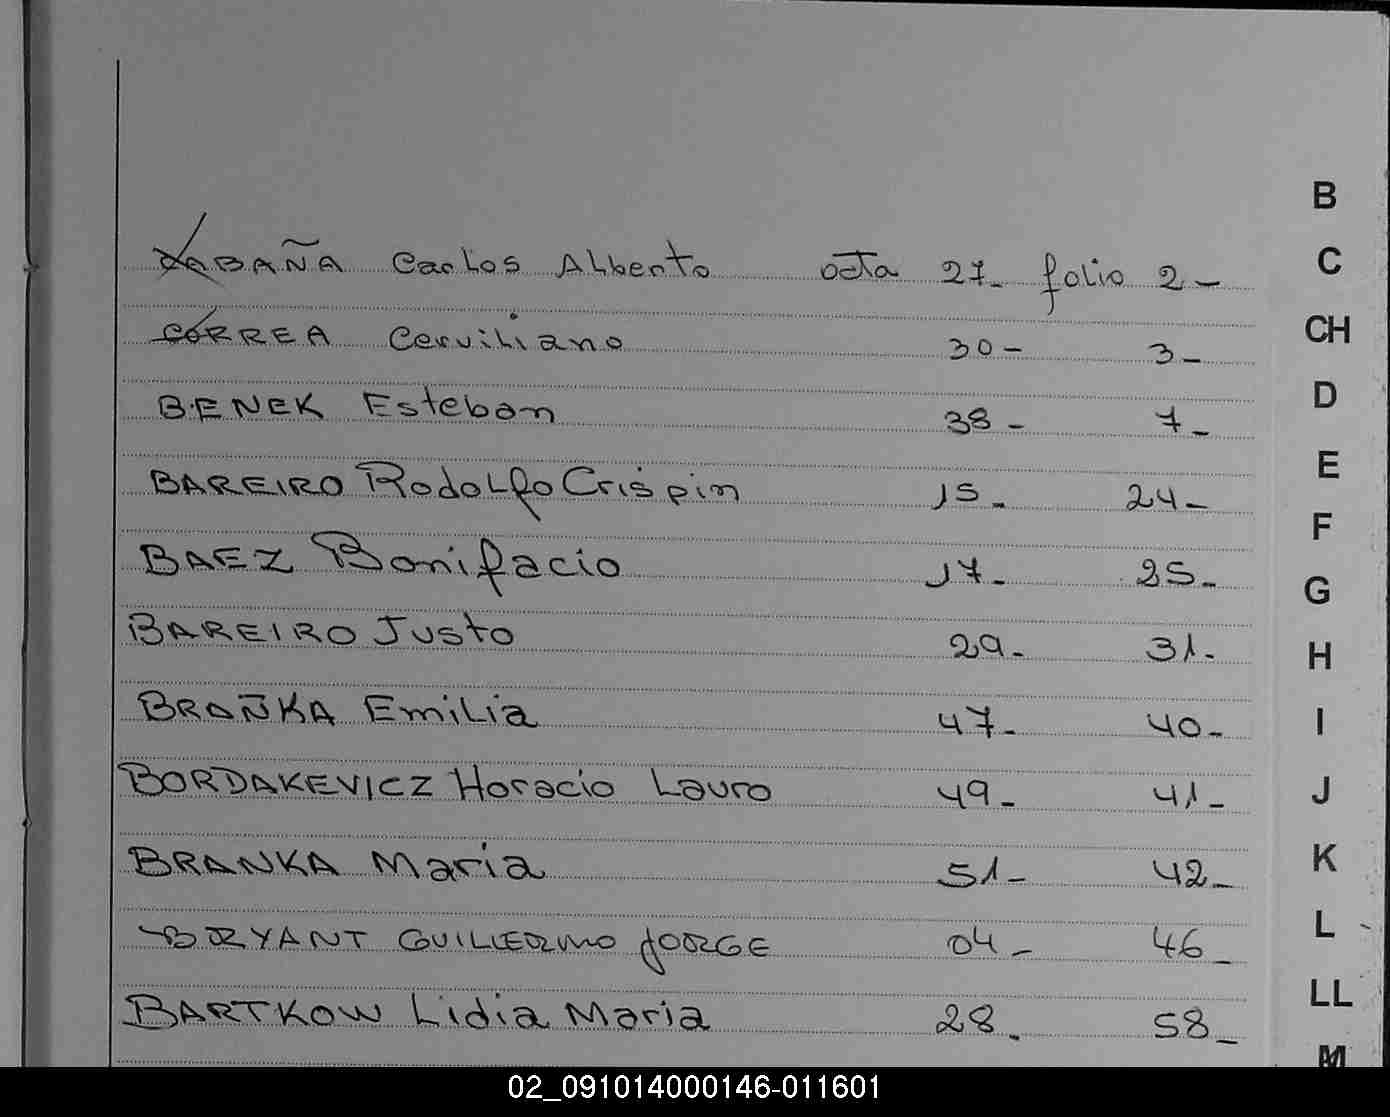 CABAÑA Carlos Alberto acta 27- folio 2-
CORREA Cerviliano 30- 3-
BENEK Esteban 38- 7-
BAREIRO Rodolfo Crispin 15- 24-
BAEZ Bonifacio 17- 25-
BAREIRO Justo 29- 31-
BRAÑKA Emilia 47- 40-
BORDAKEVICZ Horacio Lauro 49- 41-
BRANKA Maria 51- 42-
BRYANT GUILLERMO JORGE 04- 46-
BARTKOW Lidia Maria 28- 58-
B
C
CH
D
E
F
G
H
I
J
K
L
LL
M
02_091014000146-011601